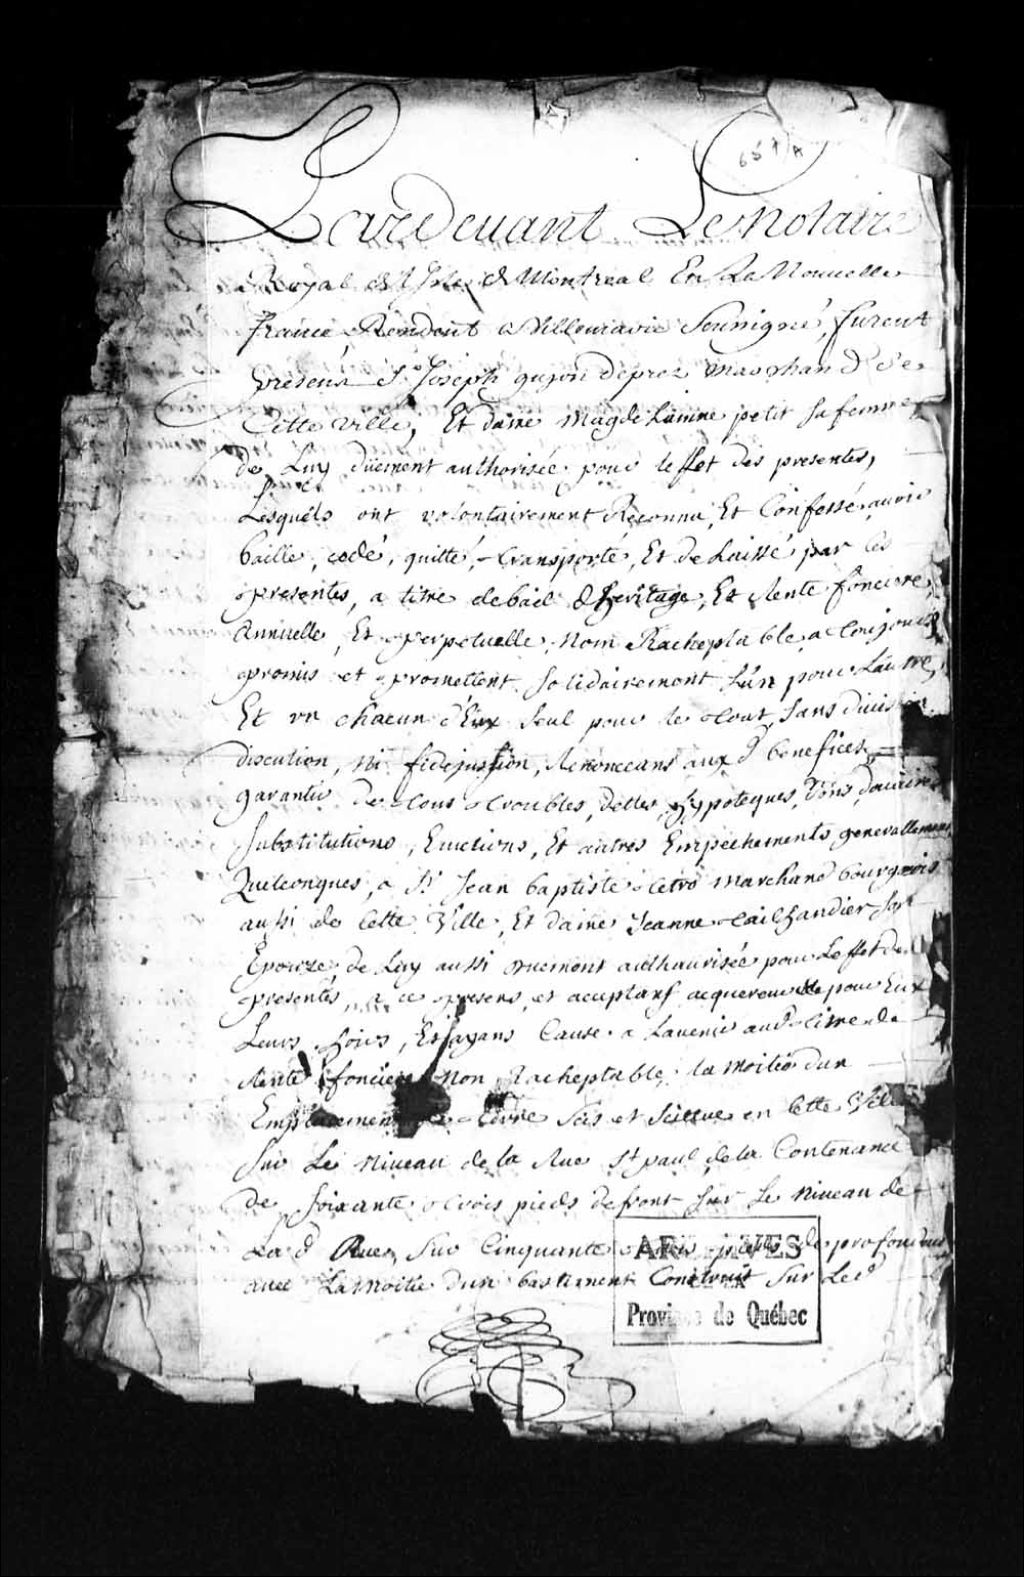 657 A
Pardevant Le Notaire
Royal de L'Isle de Montreal En La Nouvelle
france Residant a Villemarie Sousigné, furent
presens Sr. Joseph guyon desprez marchand de
Cette ville, Et dame Magdelainne petit sa femme
de Luy düement authorisée pour leffet des presentes,
Lesquels ont volontairement Reconnu, Et Confessé avoir
baille, cedé, quitté, transporté, Et delaissé par les
presentes, a titre de bail d'heritage, Et Rente fonciere,
Annuelle, Et perpetuelle, Non Racheptable, a toujours
promis et promettent solidairement L'un pour L'autre,
Et un chacun d'Eux seul pour le tout, sans division
discution, ni fidejussion, Renonceans aux d. benefices,
garantir de tous troubles, dettes, hypoteques, dons, douaires
substitutions, Evictions, Et autres Empeschements generallement
Quelconques, a Sr. Jean baptiste Cetro marchand bourgeois
aussi de Cette Ville, Et dame Jeanne tailhandier son
Epouze, de Luy aussi duement authaurisée pour Leffet des
presentes, a ce presens et aceptans acquereurs pour Eux
Leurs hoirs, Et ayans Cause a Lavenir aud. titre de
Rente fonciere Non Racheptable, la moitié dun
Emplacement de terre scis et scittué en Cette Ville
sur Le niveau de la Rue St paul, de la Contenance
de soixante trois pieds de front sur Le niveau de
La d. Rue, sur Cinquante pieds de profondeur
avec La moitié d'un bastiment Construit sur Led.
ARCHIVES
DE LA
Province de Québec